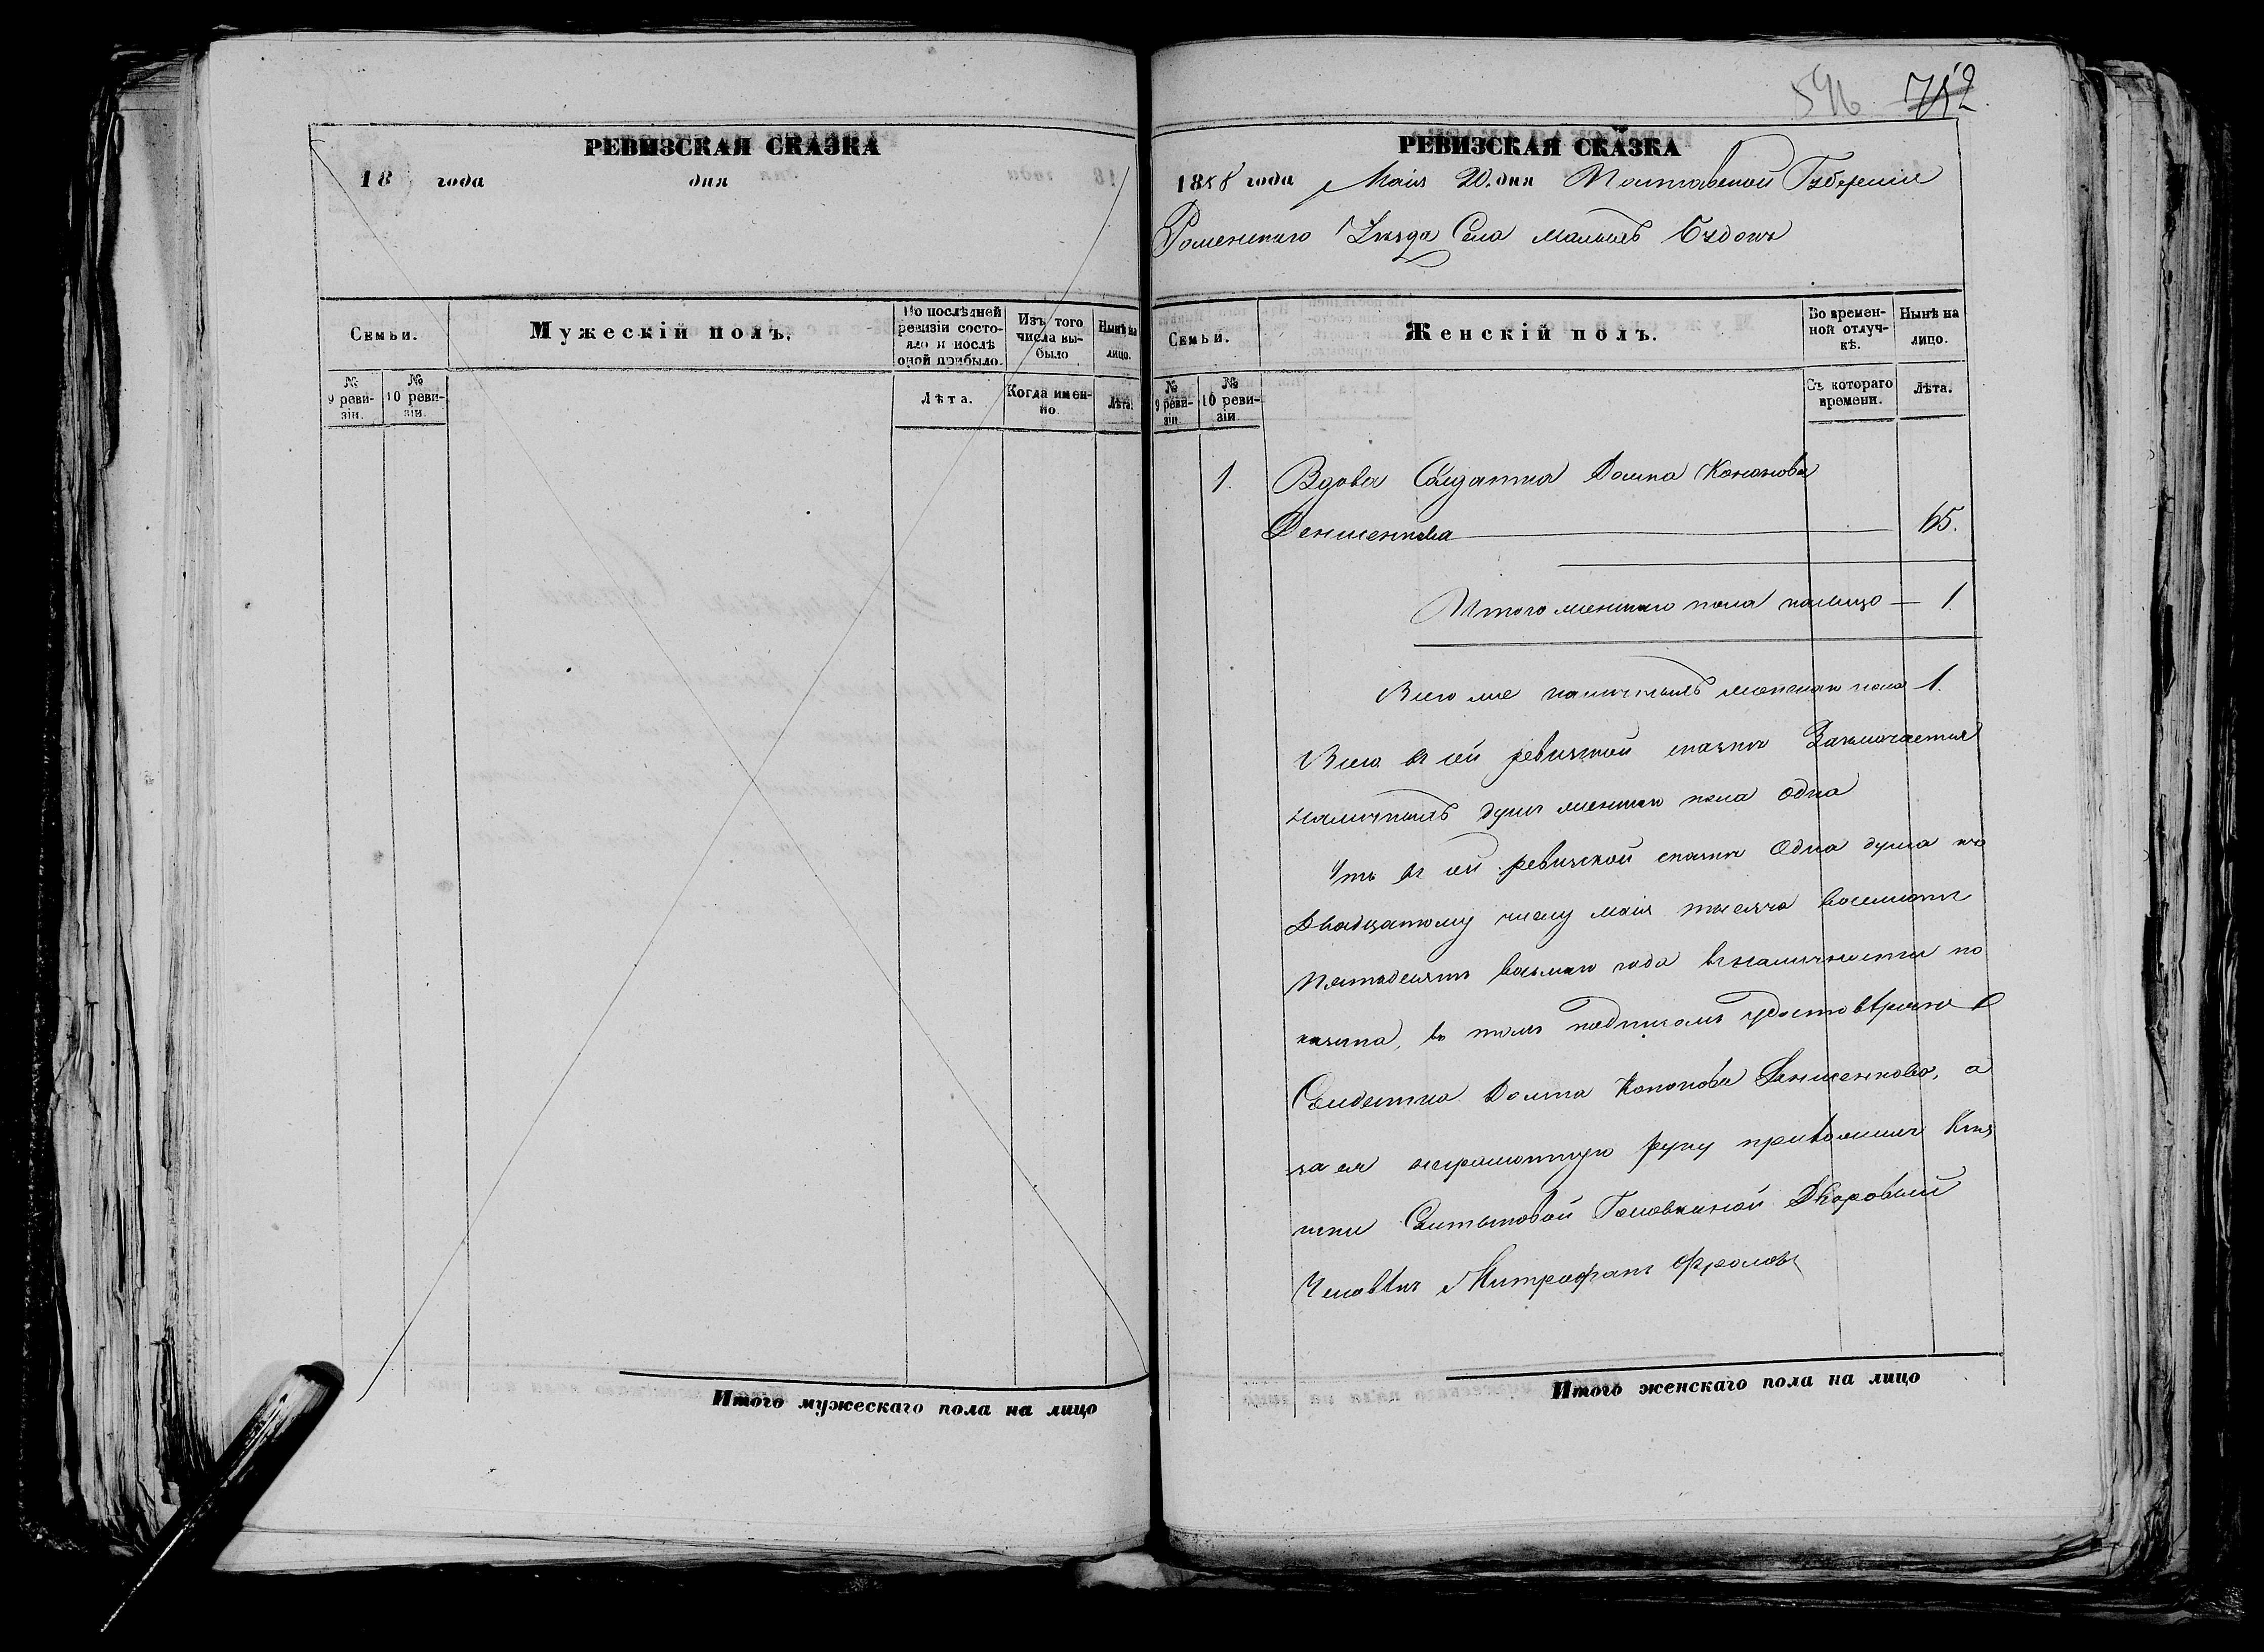 РЕВИЗСКАЯ СКАЗКА
18 года дня
Семьи.
Мужескій полъ.
По послѣдней ревизіи состояло и послѣ оной прибыло.
Изъ того числа выбыло
Нынѣ на лицо.
№ 9 ревизіи.
№ 10 ревизіи.
Лѣта.
Когда именно.
Лѣта.
Итого мужескаго пола на лицо
596 752
РЕВИЗСКАЯ СКАЗКА
1858 года Маія 20. дня Полтавской Губерніи
Роменскаго Уѣзда Села Малыхъ Будокъ
Семьи.
Женскій полъ.
Во временной отлучкѣ.
Нынѣ на лицо.
№ 9 ревизіи.
№ 10 ревизіи.
Съ котораго времени.
Лѣта.
1. Вдова Солдатка Домна Кононова
65.
Итого женскаго пола налицо — 1.
Всего же наличныхъ женскаго пола 1.
Всего въ сей ревизской сказкѣ Заключается
наличныхъ душъ женскаго пола одна
Что въ сей ревизской сказкѣ Одна душа къ
Двадцатому числу маія тысяча восемсотъ
Пятьдесятъ восьмаго года въ наличности по
казана, въ томъ подписомъ удостовѣряю
Солдатка Домна Кононова
за ея неграмотную руку
Салтыковой Головкиной Дворовый
Человѣкъ Митрофанъ Фроловъ
Итого женскаго пола на лицо